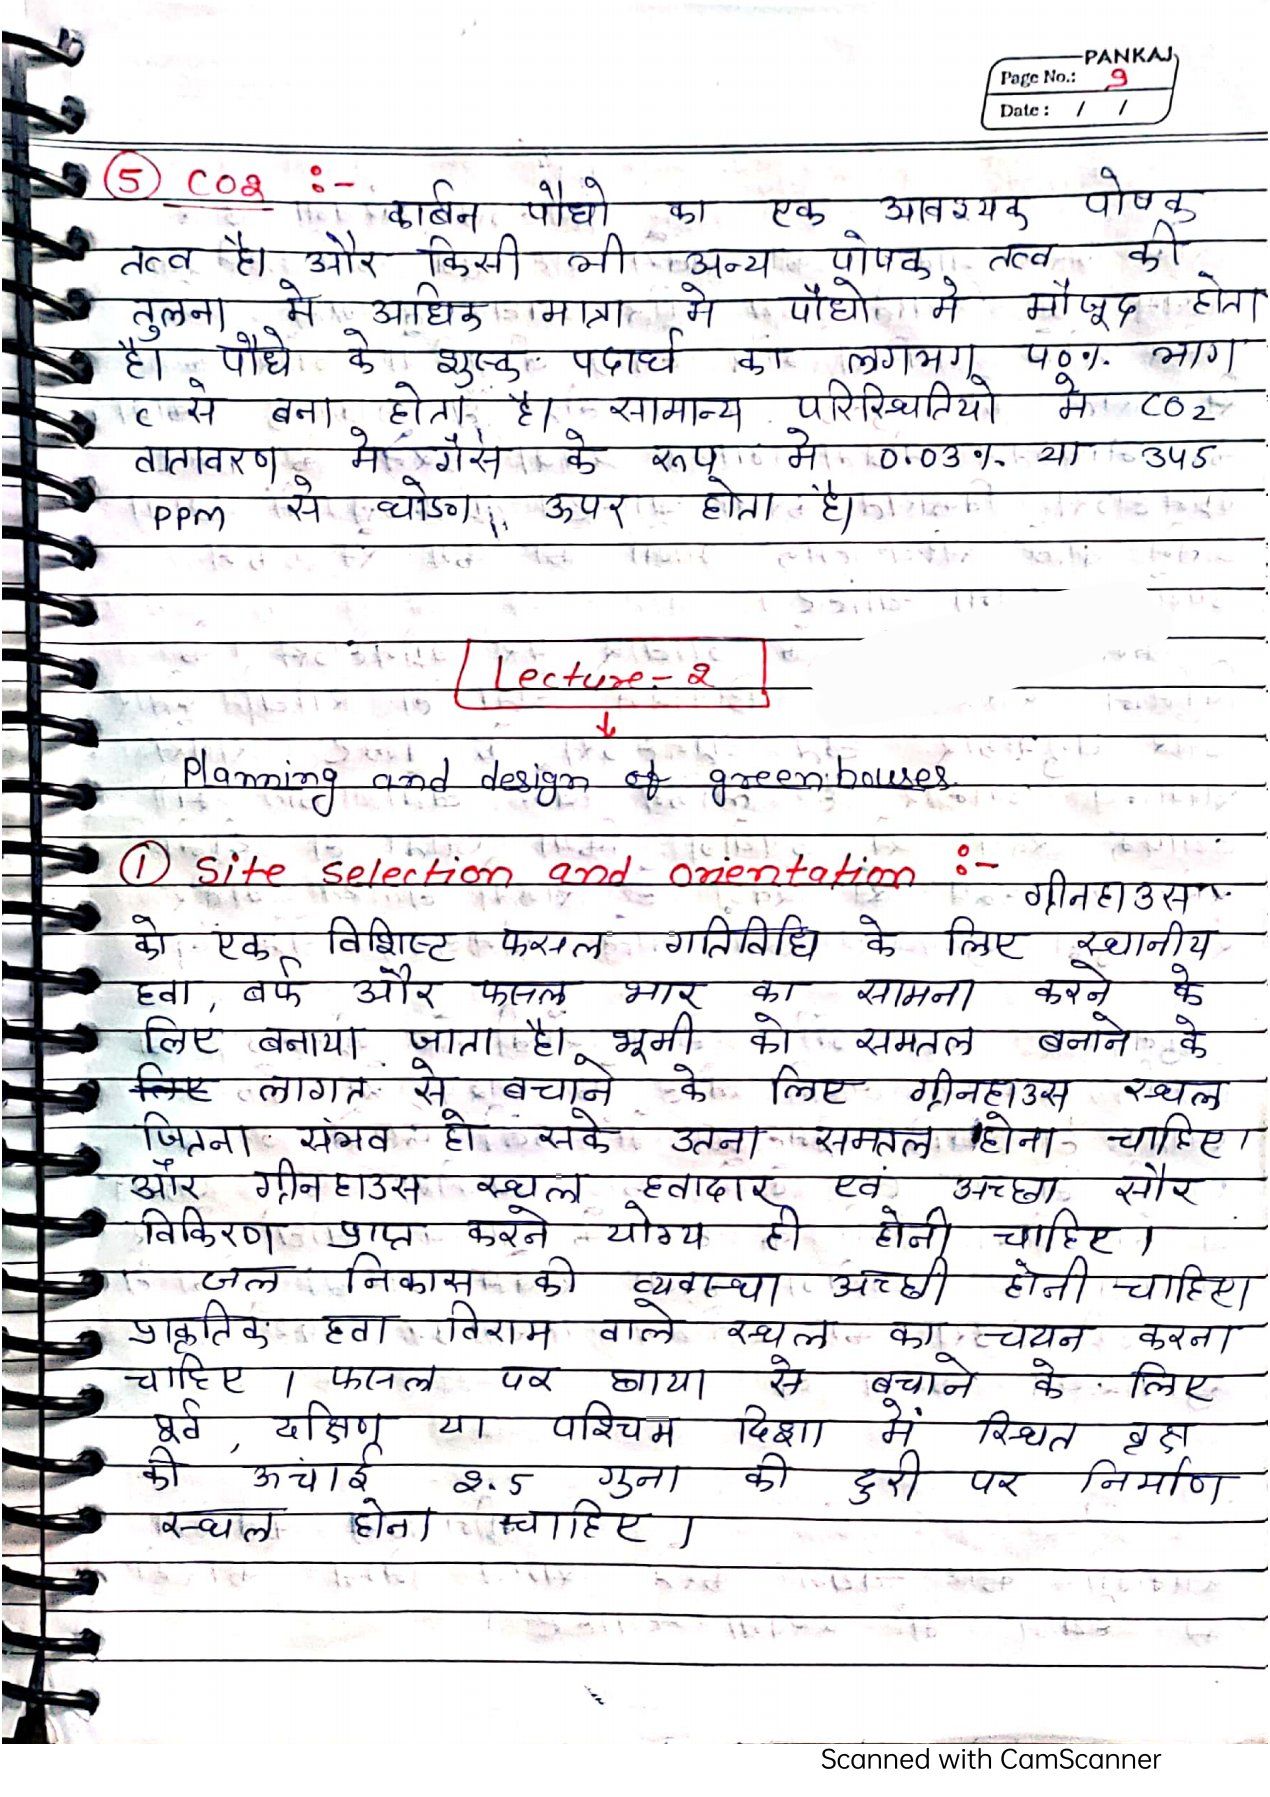 PANKAJ
Page No.: 9
Date : / /
⑤ CO2 :-
कार्बन पौधो का एक आवश्यक पोषक
तत्व है। और किसी भी अन्य पोषक तत्व की
तुलना मे अधिक मात्रा मे पौधो मे मौजूद होता
है। पौधे के शुस्क पदार्थ का लगभग 40%. भाग
c से बना होता है। सामान्य परिस्थितियो मे CO2
वातावरण मे गैस के रूप मे 0.03%. या 345
PPM से थोडा ऊपर होता है।
Lecture - 2
↓
Planning and design of greenhouses.
① Site selection and orientation :-
ग्रीनहाउस
को एक विशिस्ट फसल गतिविधि के लिए स्थानीय
हवा, बर्फ और फसल भार का सामना करने के
लिए बनाया जाता है। भूमी को समतल बनाने के
लिए लागत से बचाने के लिए ग्रीनहाउस स्थल
जितना संभव हो सके उतना समतल होना चाहिए।
और ग्रीनहाउस स्थल हवादार एवं अच्छा सौर
विकिरण प्राप्त करने योग्य ही होनी चाहिए।
जल निकास की व्यवस्था अच्छी होनी चाहिए।
प्राकृतिक हवा विराम वाले स्थल का चयन करना
चाहिए। फसल पर छाया से बचाने के लिए
पूर्व, दक्षिण या पश्चिम दिशा में स्थित वृक्ष
की ऊचाई 2.5 गुना की दुरी पर निर्माण
स्थल होना चाहिए।
Scanned with CamScanner